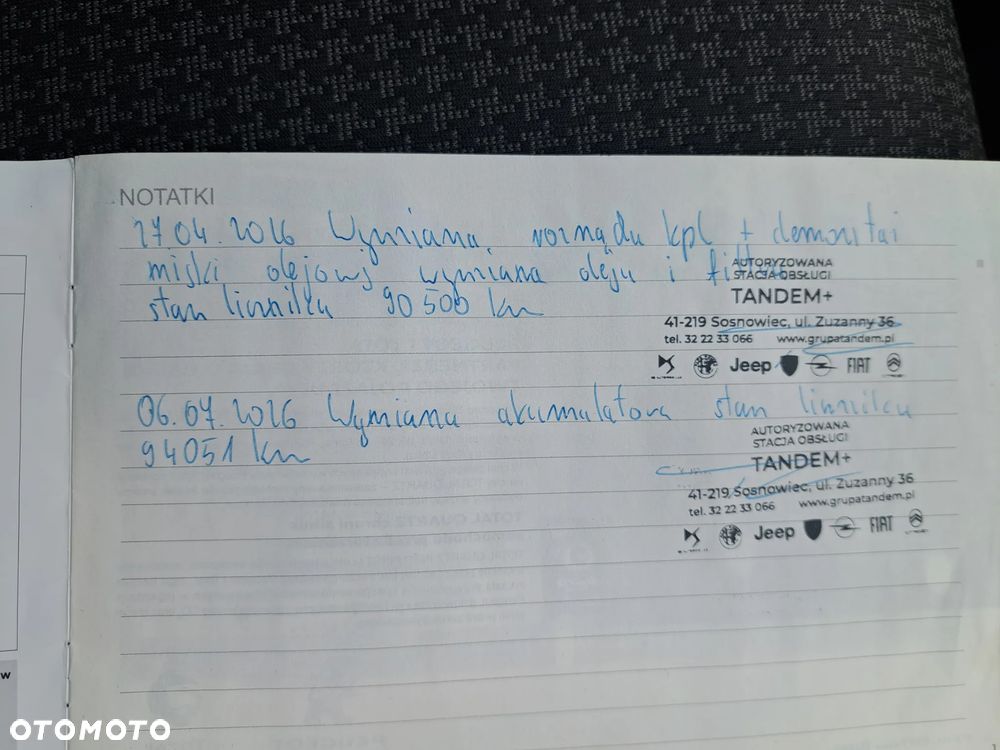 NOTATKI
27.04.2026 Wymiana rozrządu kpl + demontaż
miski olejowej wymiana oleju i filtra
stan licznika 90 500 km
AUTORYZOWANA
STACJA OBSŁUGI
TANDEM+
41-219 Sosnowiec, ul. Zuzanny 36
tel. 32 22 33 066 www.grupatandem.pl
Jeep FIAT
06.07.2026 Wymiana akumulatora stan licznika
94051 km
AUTORYZOWANA
STACJA OBSŁUGI
TANDEM+
41-219 Sosnowiec, ul. Zuzanny 36
tel. 32 22 33 066 www.grupatandem.pl
Jeep FIAT
w
OTOMOTO